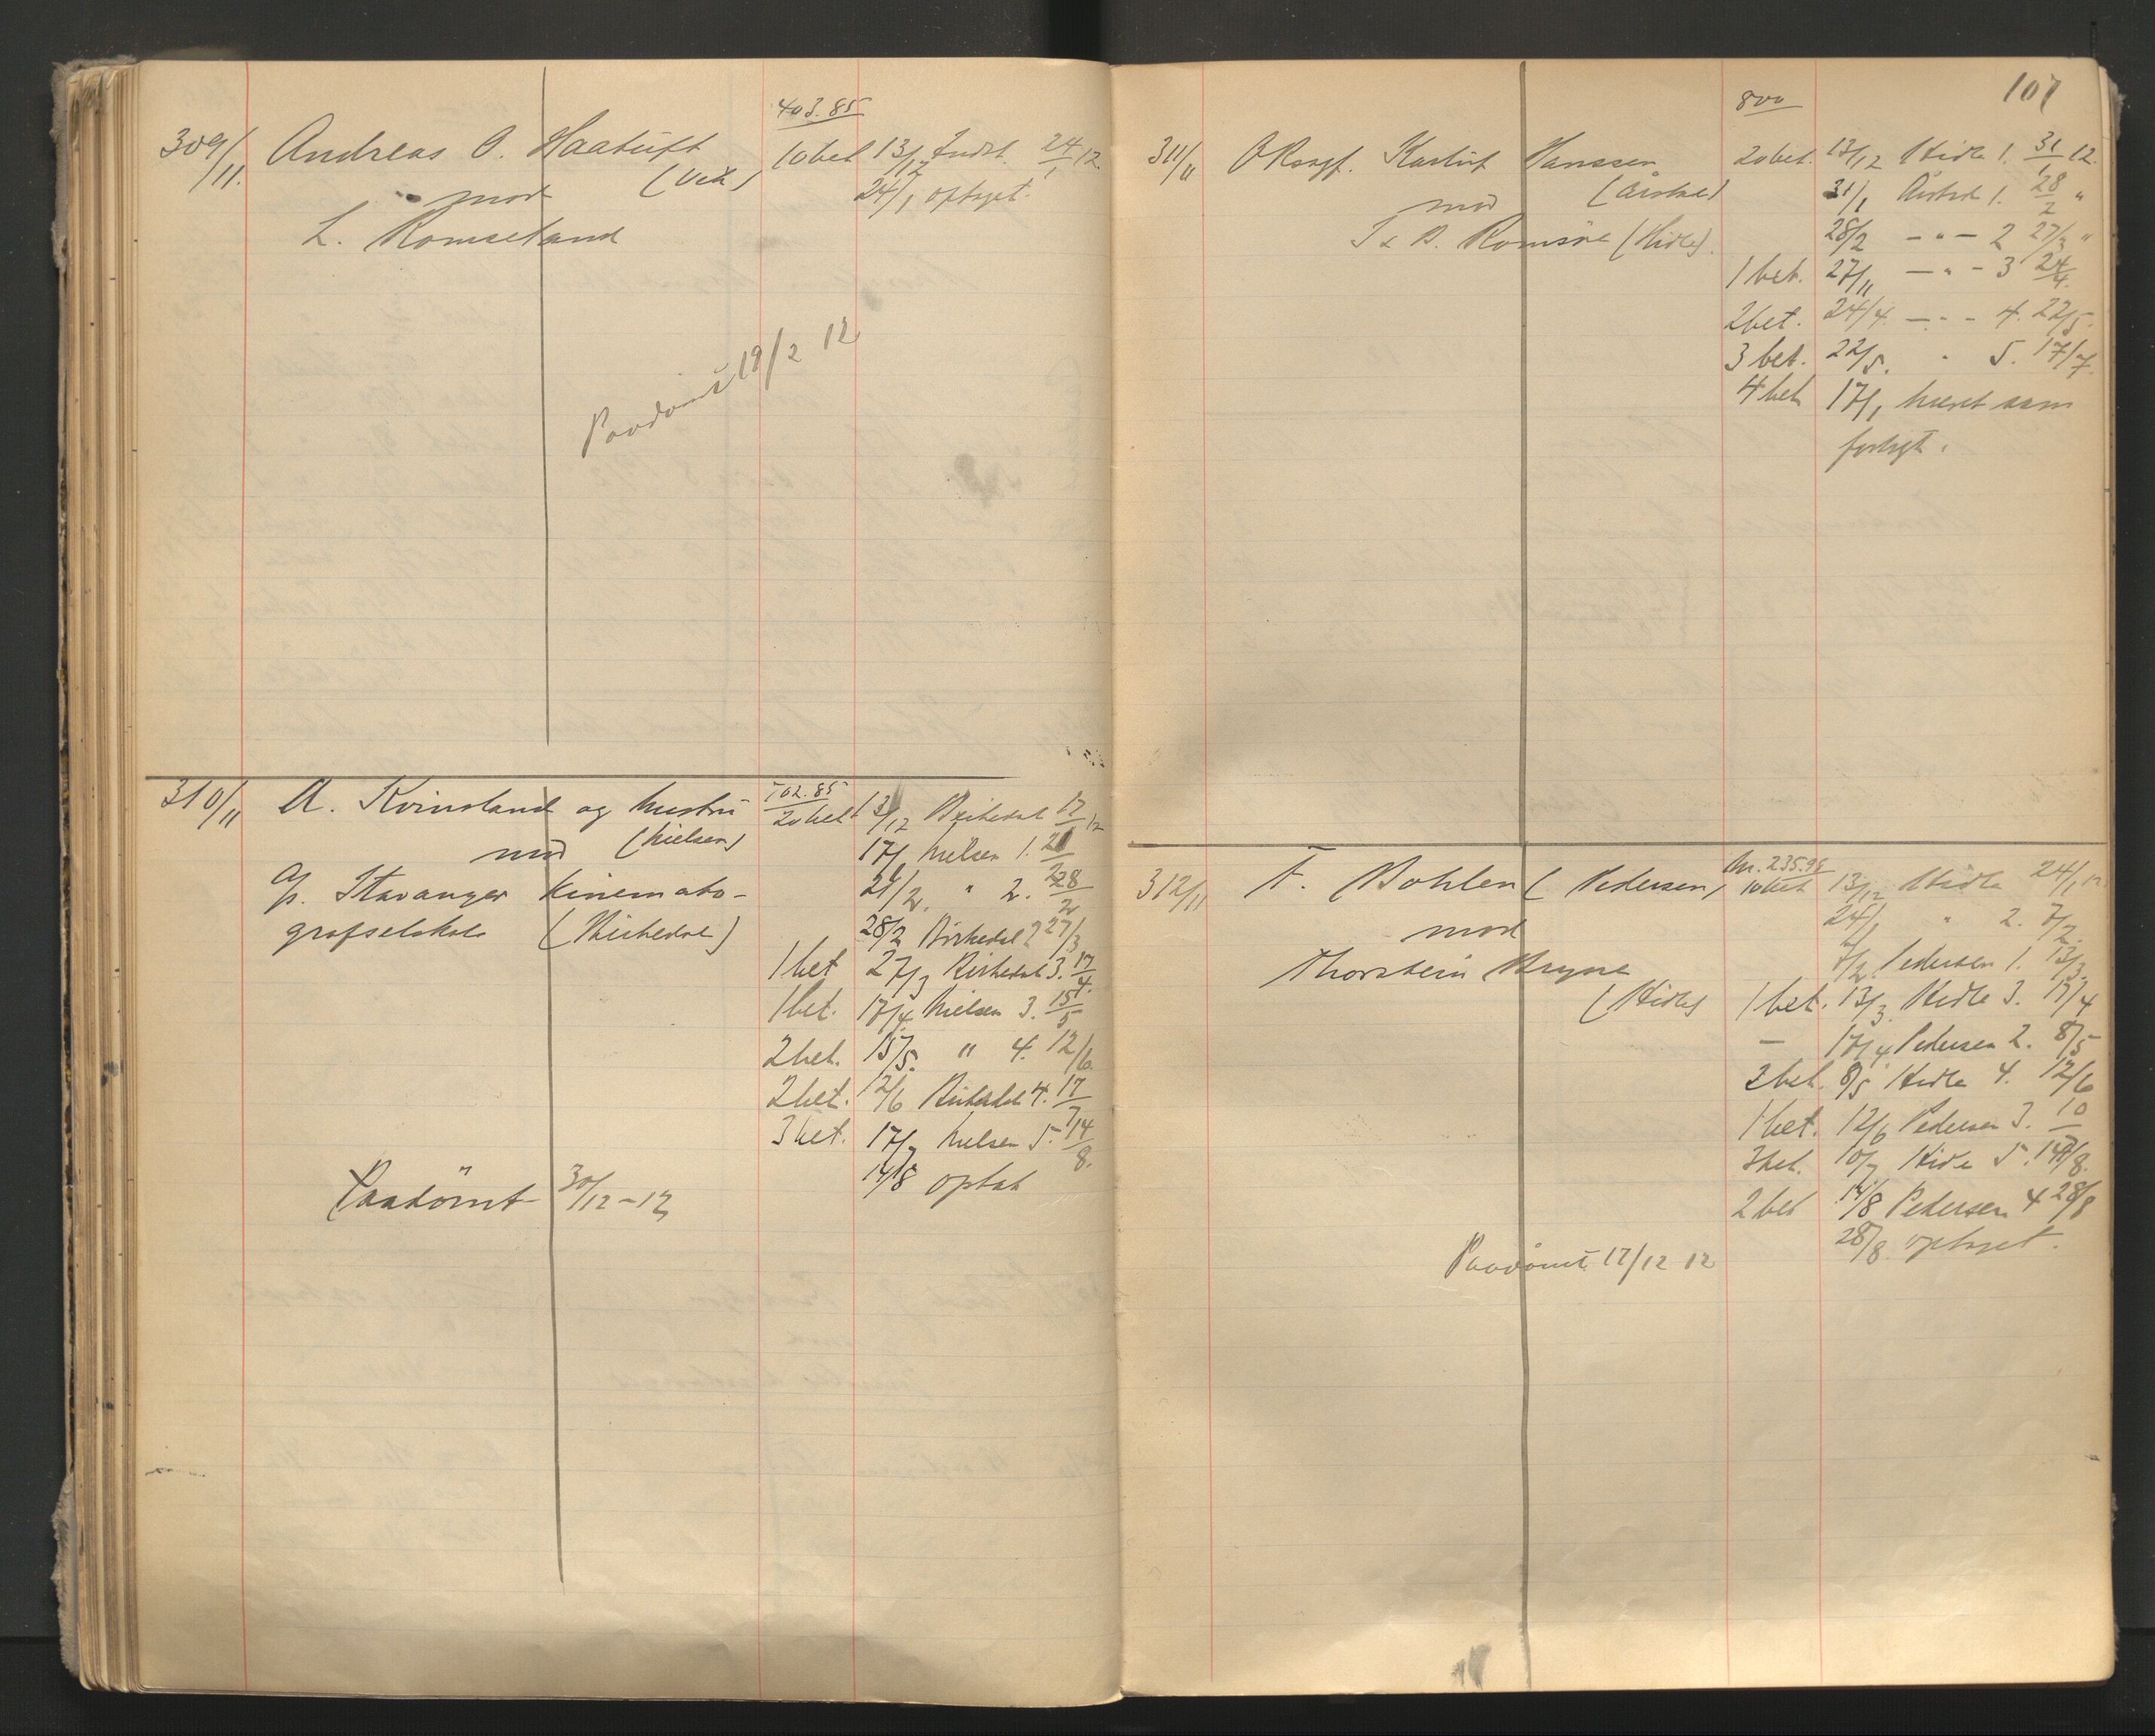 403.85
309/11. Andreas O. Haatuft 10 bet 13/12 Indst. 24/1 12
mod (Vek) 24/1 optaget.
L. Romseland
Paadömt 19/2 12
310/11 A. Kvinsland og hustru 702.85 20 bet 13/12 Birkedal 17/1 12
mod (Nielsen) 17/1 Nielsen 1. 21/2
A/s. Stavanger Kinemato- 21/2. " 2. 28/2
grafselskab (Birkedal) 28/2 Birkedal 2 27/3
1 bet 27/3 Birkedal 3. 17/4.
1 bet. 17/4 Nielsen 3. 15/5
2 bet. 15/5. " 4. 12/6.
2 bet. 12/6 Birkedal 4. 17/7
3 bet. 17/7 Nielsen 5. 14/8.
14/8 optat
Paadömt 30/12 - 12
107
800
311/11 Hanssen 20 bet. 13/12 Hidle 1. 31/1 12.
mod 31/1 1. 28/2 "
T & B. Romsöe (Hidle). 28/2 — " — 2 27/3 "
1 bet. 27/11 — " - 3 24/4.
2 bet. 24/4. — " - 4. 22/5.
3 bet. 22/5. " 5. 17/7.
4 bet 17/1 hævet som
forligt.
312/11 F. Bohlen (Pedersen) Kr. 235.96 10 bet 13/12 Hidle 24/1 12
mod 24/1 " 2. 7/2.
Thorstein Bryne 7/2. Pedersen 1. 13/3.
(Hidle) 1 bet. 13/3. Hidle 3. 17/4
— 17/4 Pedersen 2. 8/5
2 bet. 8/5 Hidle 4. 12/6
1 bet. 12/6 Pedersen 3. 10
3 bet. 10/7 Hidle 5. 14/8.
2 bet 14/8 Pedersen 4 28/8
28/8. optaget.
Paadömt 17/12 12